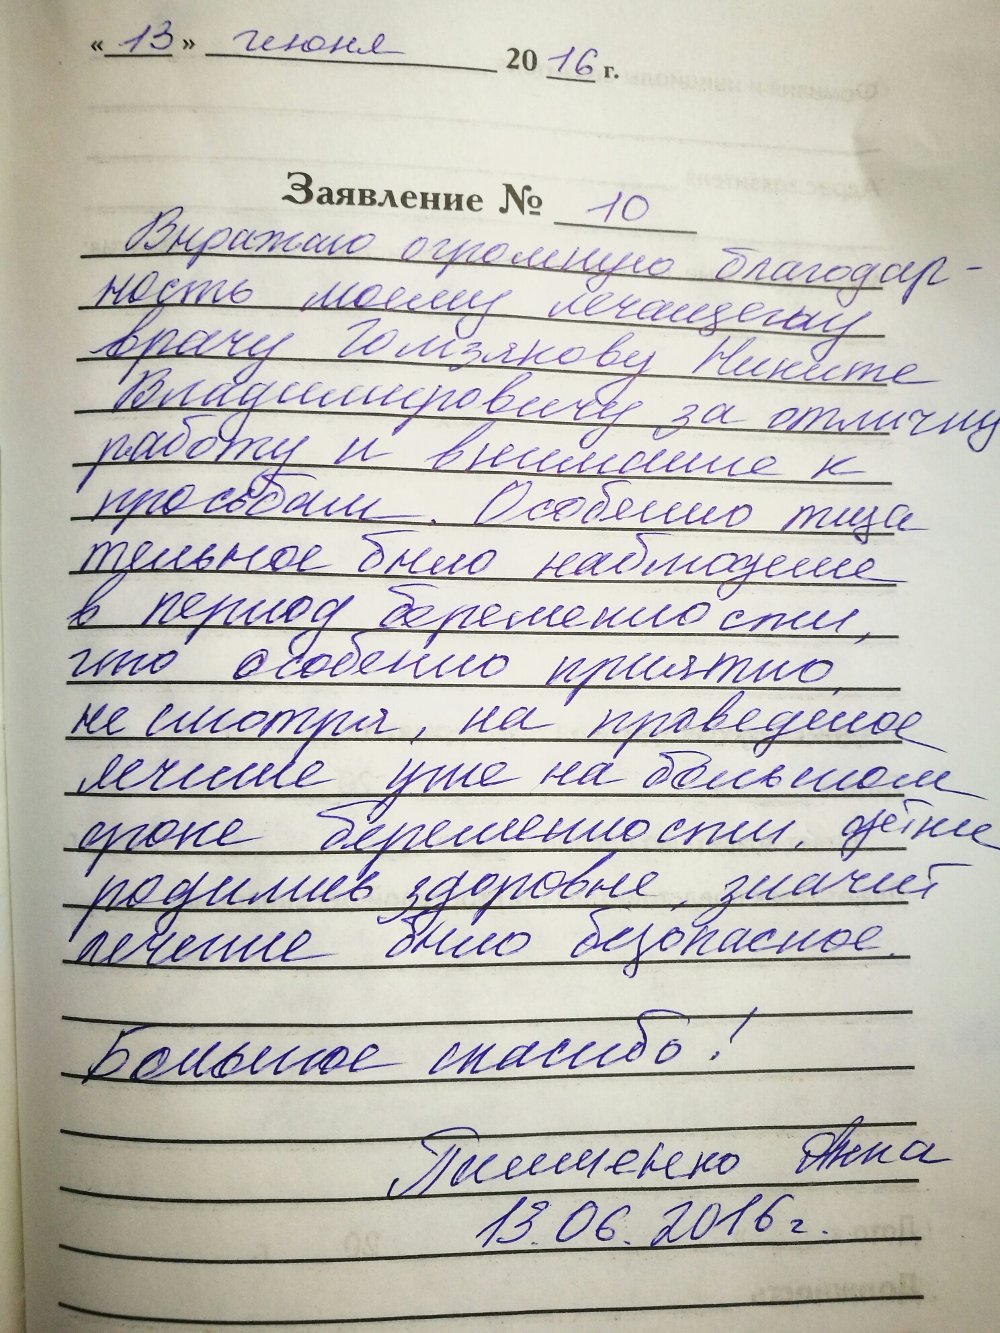 « 13 » июня 2016 г.
Заявление № 10
Выражаю огромную благодар-
ность моему лечащему
врачу Никите
Владимировичу за отличну
работу и внимание к
просьбам. Особенно тща
тельное было наблюдение
в период беременности,
что особенно приятно,
не смотря, на проведеное
лечение уже на большом
сроке беременности, детки
родились здоровые, значит
лечение было безопасное.
Большое спасибо!
Анна
13.06.2016г.